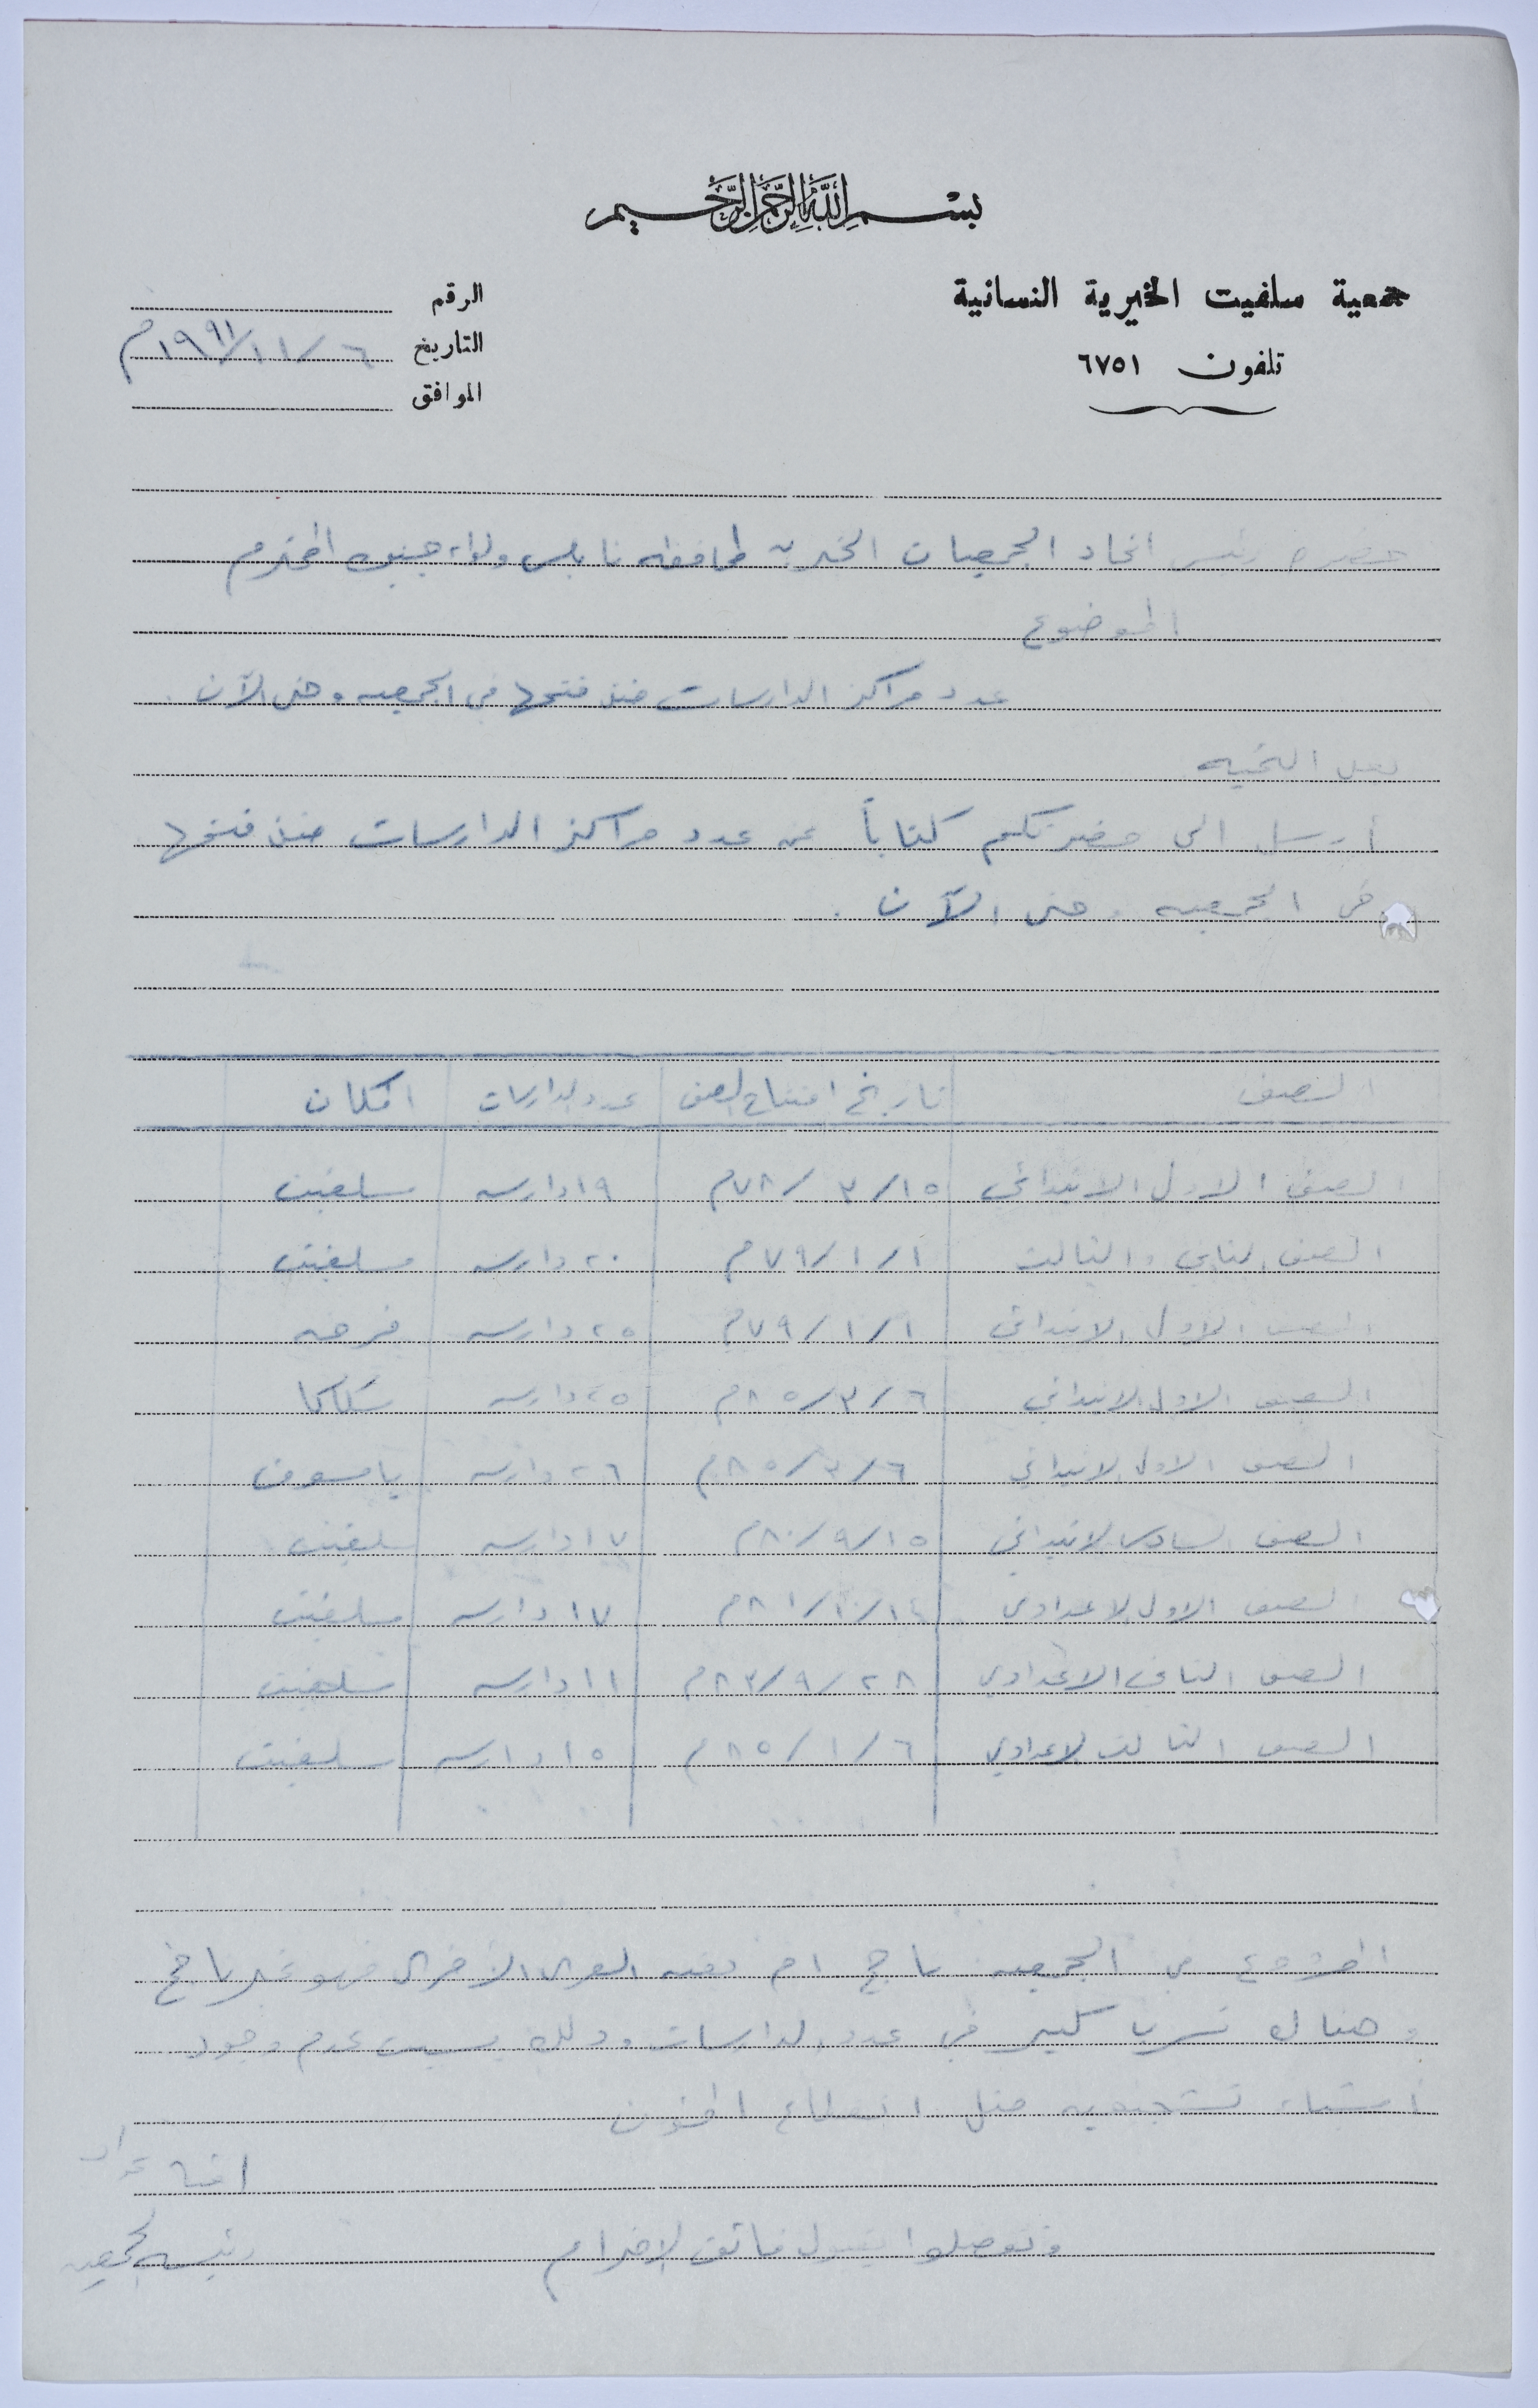 بسم الله الرحمن الرحيم
جمعية سلفيت الخيرية النسائية
تلفون ٦٧٥١
الرقم
التاريخ ٦/١١/١٩٩١م
الموافق
حضرة رئيس اتحاد الجمعيات الخيرية لمحافظة نابلس ولواء جنين المحترم
الموضوع
عدد مراكز الدارسات منذ فتحها في الجمعيه وحتى الآن.
بعد التحيه
أرسل الى حضرتكم كتاباً عن عدد مراكز الدارسات منذ فتحها
في الجمعيه وحتى الآن.
الصف تاريخ افتتاح الصف عدد الدارسات المكان
الصف الاول الابتدائي ١٥/٣/٧٨م ١٩ دارسه سلفيت
الصف الثاني والثالث ١/١/٧٩م ٢٠ دارسه سلفيت
الصف الاول الابتدائي ١/١/٧٩م ٢٥ دارسه فرخه
الصف الاول الابتدائي ٦/٣/٨٥م ٢٥ دارسه سكاكا
الصف الاول الابتدائي ٦/٣/٨٥م ٢٦ دارسه ياسوف
الصف السادس الابتدائي ١٥/٩/٨٠م ١٧ دارسه سلفيت
الصف الاول الاعدادي ١٧ دارسه سلفيت
الصف الثاني الاعدادي ٢٨/٩/٨٣م ١١ دارسه سلفيت
الصف الثالث الاعدادي ٦/١/٨٥م ١٥ دارسه سلفيت
المشروع في الجمعيه ناجح اما بقيه القرى الأخرى فهو غير ناجح
وهناك تسرب كبير في عدد الدارسات وذلك بسبب عدم وجود
أشياء تشجيعيه مثل انقطاع المؤن
وتفضلوا بقبول فائق الإحترام
رئيسه الجمعيه